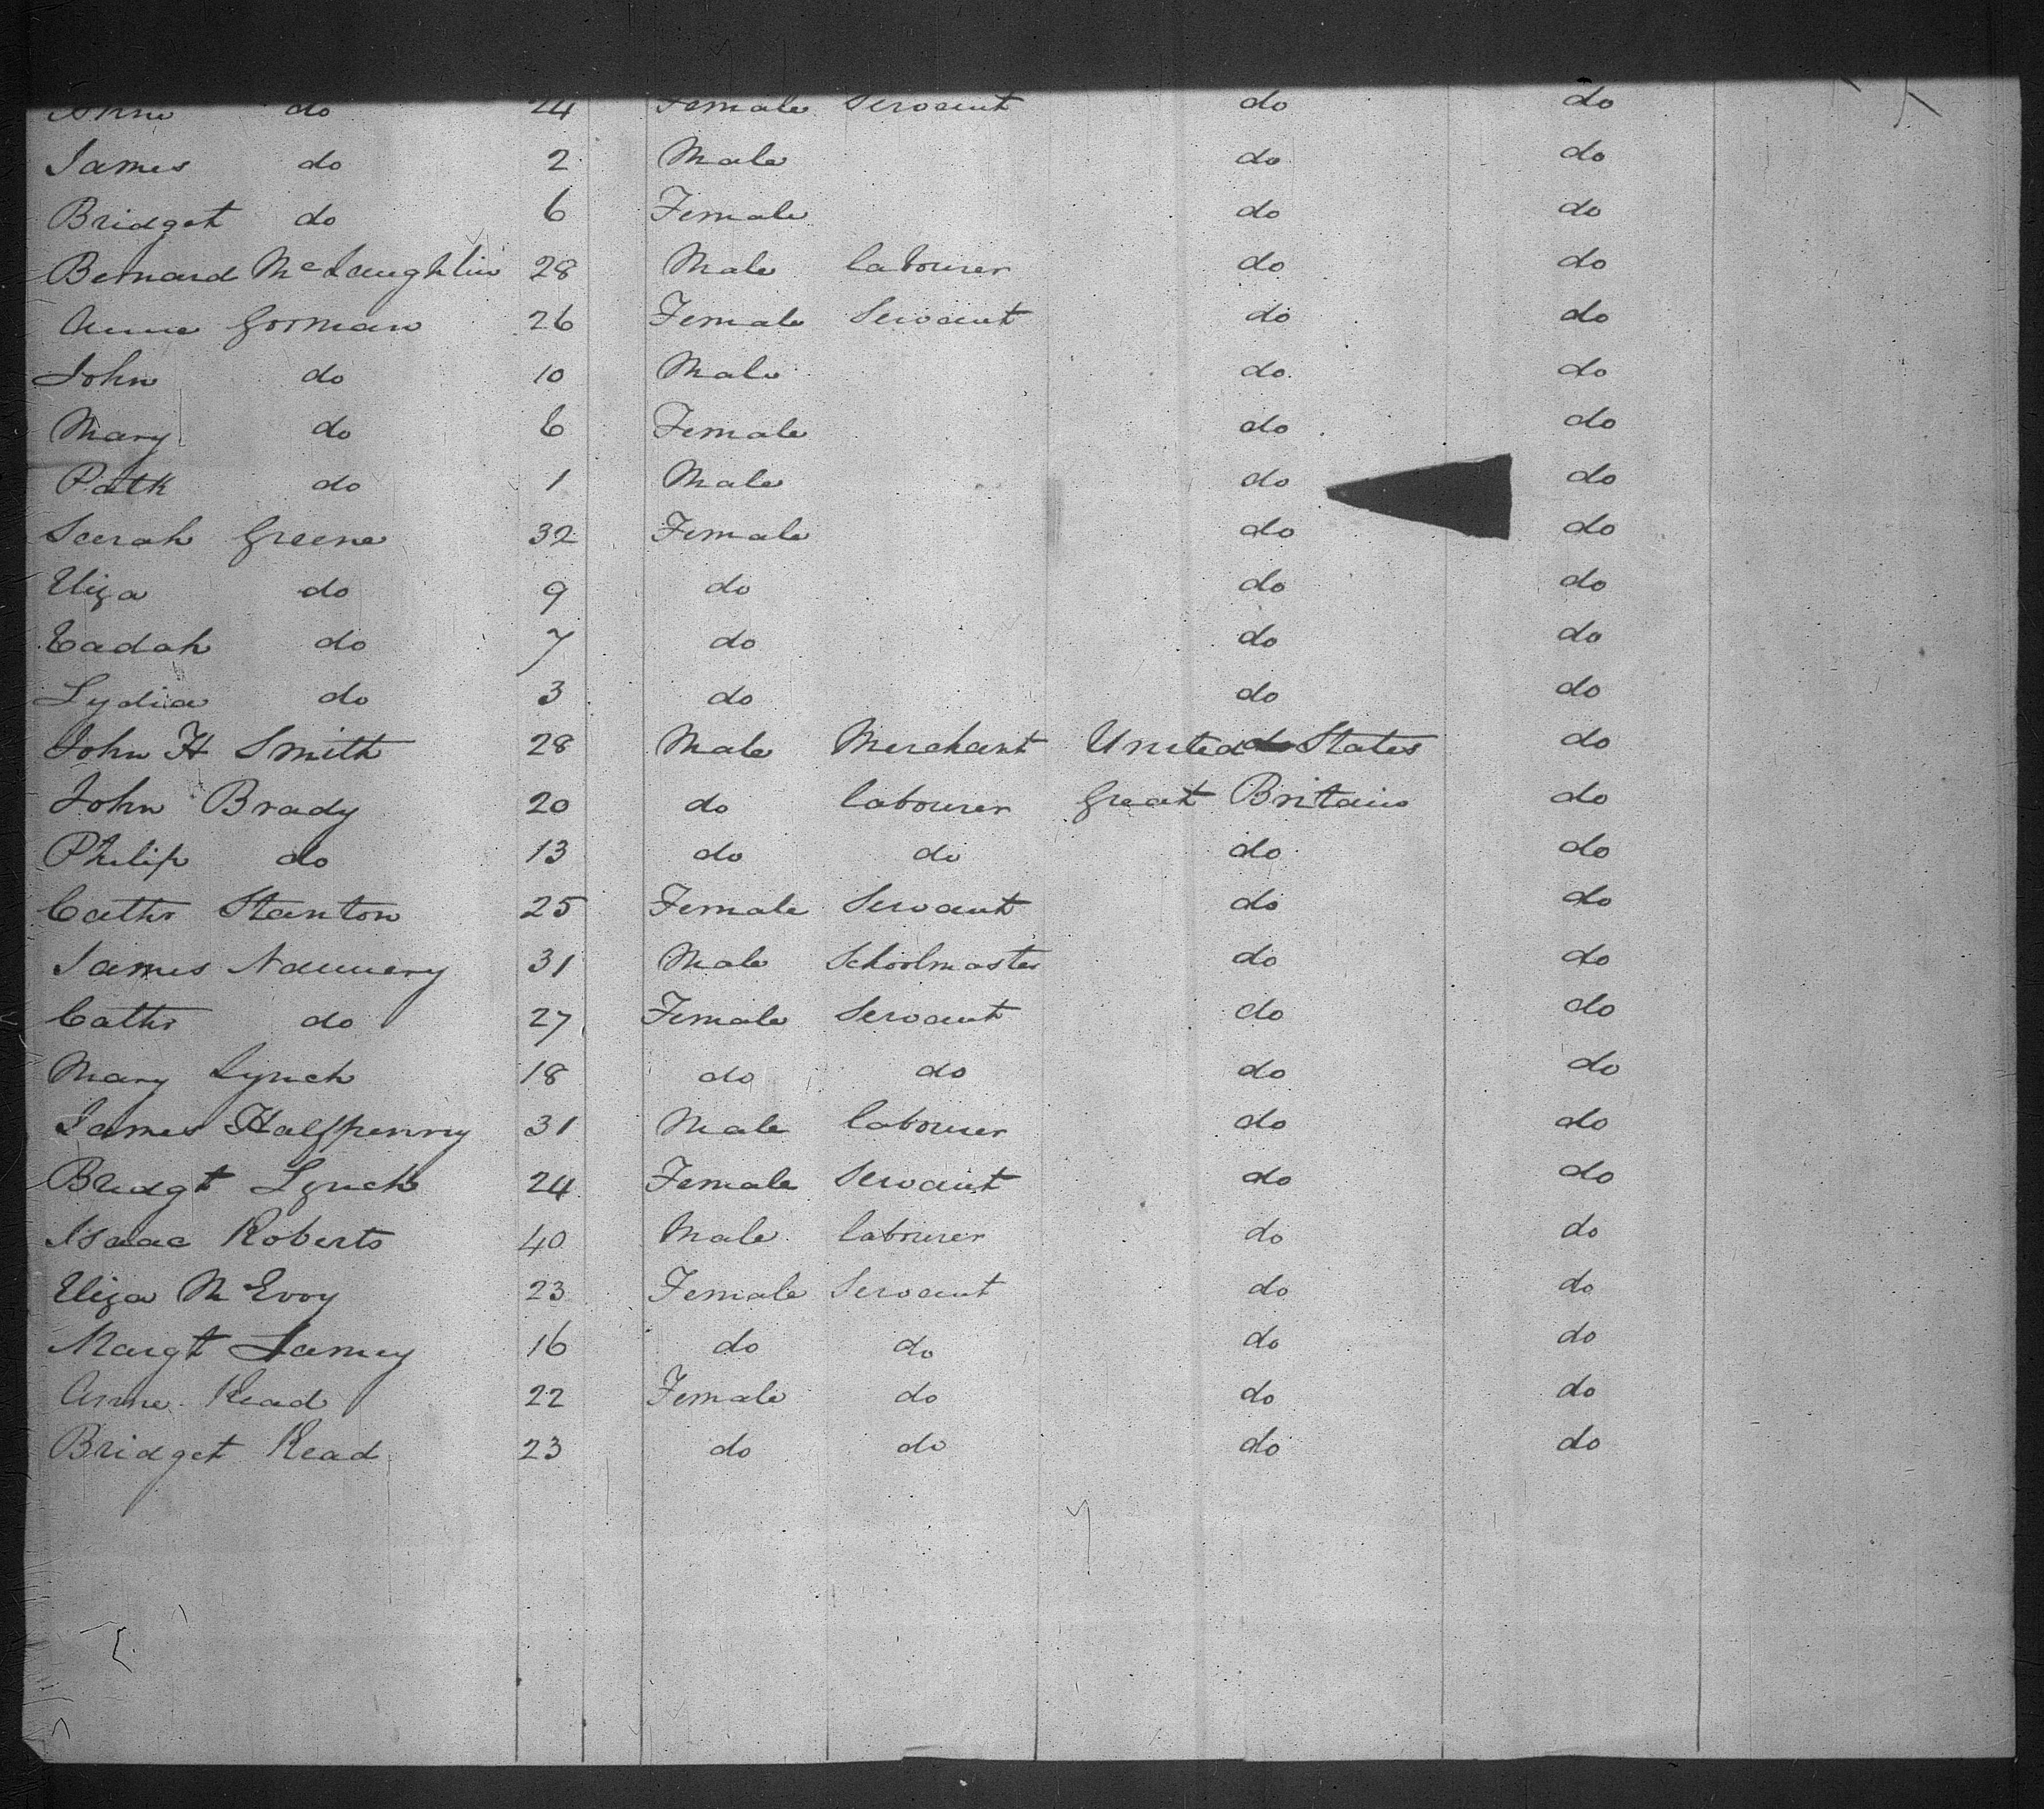 Anne do 24 Female Servant do do
James do 2 Male do do
Bridget do 6 Female do do
Bernard McLaughlin 28 Male labourer do do
Anne Gorman 26 Female Servant do do
John do 10 Male do do
Mary do 6 Female do do
Patk do 1 Male do do
Sarah Greene 32 Female do do
Eliza do 9 do do do
do 7 do do do
Lydia do 3 do do do
John H Smith 28 Male Merchant United States do
John Brady 20 do labourer Great Britain do
Philip do 13 do do do do
Cathr Stanton 25 Female Servant do do
James Nannery 31 Male Schoolmaster do do
Cathr do 27 Female Servant do do
Mary Lynch 18 do do do do
James Halfpenny 31 Male labourer do do
Bridgt Lynch 24 Female Servant do do
Isaac Roberts 40 Male labourer do do
Eliza McEvoy 23 Female Servant do do
Margt 16 do do do do
Anne Read 22 Female do do do
Bridget Read 23 do do do do